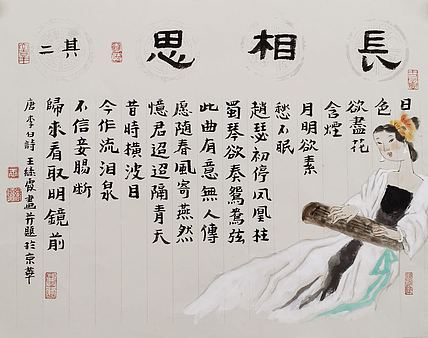 長相思
其二
日
色
欲盡花
含煙
月明欲素
愁不眠
趙瑟初停鳳凰柱
蜀琴欲奏鴛鴦弦
此曲有意無人傳
愿隨春風寄燕然
憶君迢迢隔青天
昔時橫波目
今作流泪泉
不信妾腸断
歸來看取明鏡前
唐李白詩王絲霞畫并題於京華